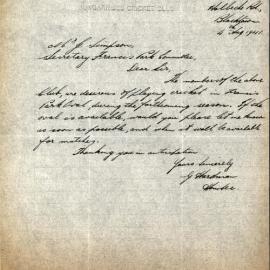 CRICKET CLUB
4th Aug 1941.
Mr J. Simpson,
Secretary Francis Park Committee,
Dear Sir,
The members of the above
Club, are desirous of playing cricket in Francis
Park Oval, during the forthcoming season. If the
oval is available, would you please let me know
as soon as possible, and when it will be available
for matches.
Thanking you in anticipation
Yours Sincerely
G Hardman